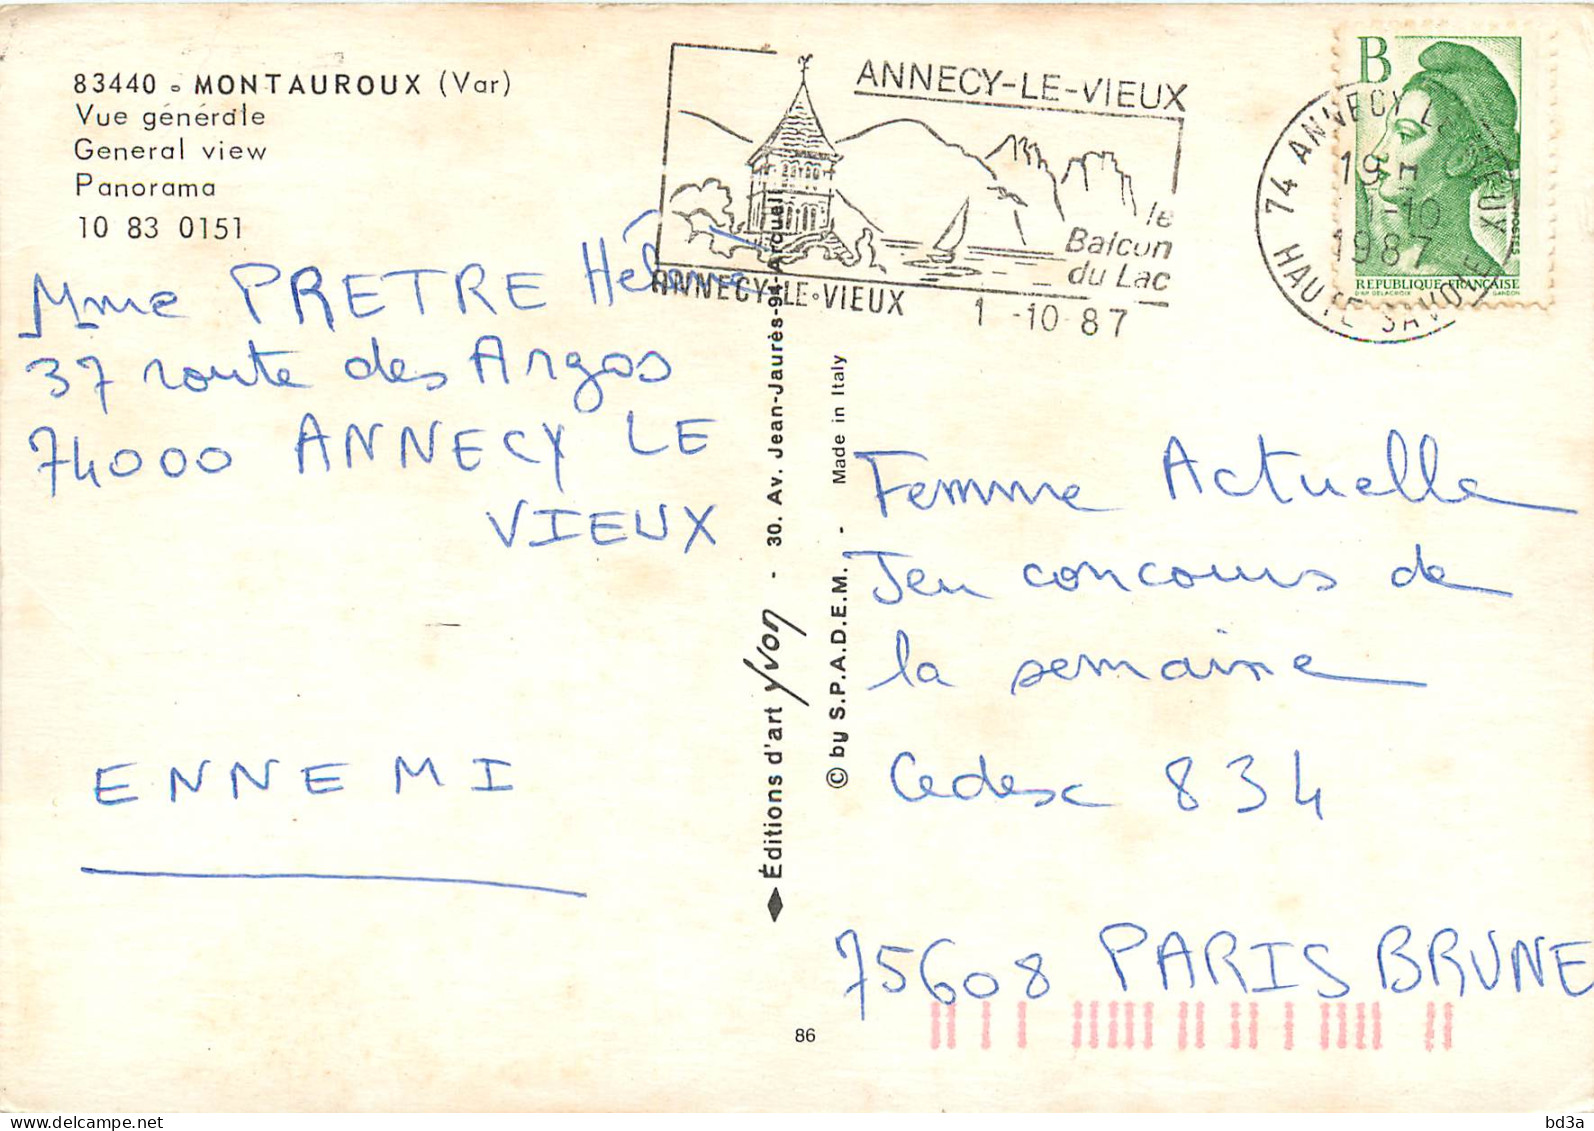 83440 - MONTAUROUX (Var)
Vue générale
General view
Panorama
10 83 0151
ANNECY-LE-VIEUX
le
Balcon
du Lac
ANNECY-LE-VIEUX 1-10-87
B
RÉPUBLIQUE FRANÇAISE
D'AP. DELACROIX GANDON
POSTES
74 ANNECY LE VIEUX
19 H
1-10
1987
HAUTE SAVOIE
Mme PRETRE Hélène
37 route des Argos
74000 ANNECY LE
VIEUX
ENNEMI
Éditions d'art Yvon - 30. Av. Jean-Jaurès-94-Arcueil
© by S.P.A.D.E.M. - Made in Italy
Femme Actuelle
Jeu concours de
la semaine
Cedex 834
75608 PARIS BRUNE
86
bd3a